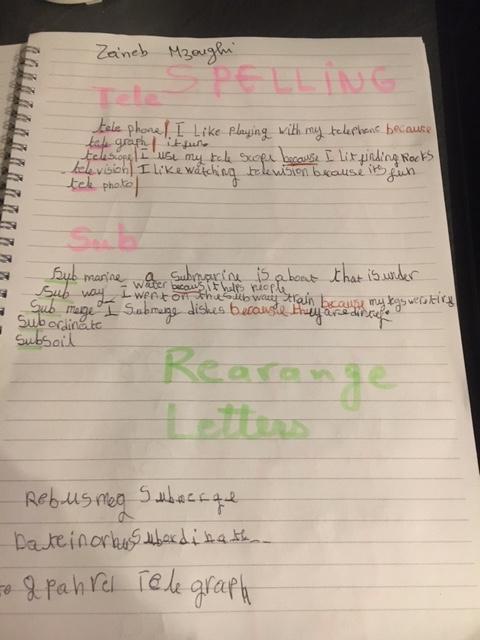 Zaineb Mzoughi
SPELLING
Tele
tele phone | I Like Playing with my telephone because
tele graph | it fun
telescope | I use my tele scope because I
television | I like watching television because it's fun
tele photo |
Sub
Sub marine a submarine is a boat that is under
water because it helps people
Sub way I went on the subway train because my legs were
Sub merge I Submerge dishes because they are
Subordinate
Subsoil
Rearange
Letters
Rebusmeg Submerge
Subordinate
Telegraph